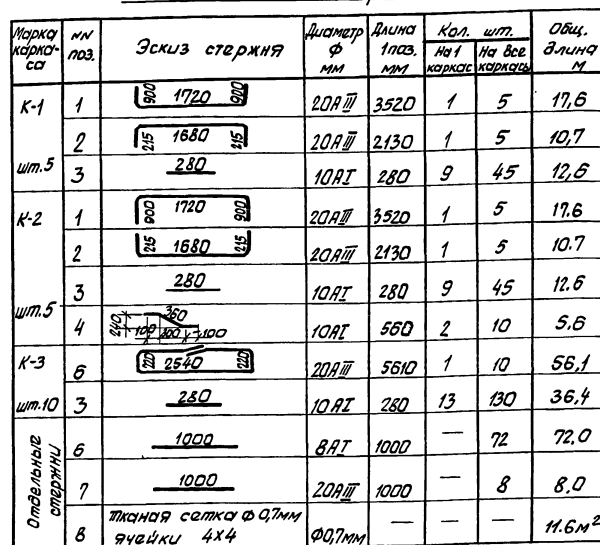 Марка каркаса | NN поз. | Эскиз стержня | Диаметр Ф мм | Длина 1 поз. мм | Кол. шт. На 1 каркас | Кол. шт. На все каркасы | Общ. длина м
К-1 | 1 | 900 1720 900 | 20АIII | 3520 | 1 | 5 | 17,6
2 | 215 1680 215 | 20АIII | 2130 | 1 | 5 | 10,7
шт.5 | 3 | 280 | 10АI | 280 | 9 | 45 | 12,6
К-2 | 1 | 900 1720 900 | 20АIII | 3520 | 1 | 5 | 17.6
2 | 215 1680 215 | 20АIII | 2130 | 1 | 5 | 10.7
3 | 280 | 10АI | 280 | 9 | 45 | 12.6
шт.5 | 4 | 240 360 100 200 100 | 10АI | 560 | 2 | 10 | 5.6
К-3 | 6 | 220 2540 220 | 20АIII | 5610 | 1 | 10 | 56,1
шт.10 | 3 | 280 | 10АI | 280 | 13 | 130 | 36,4
Отдельные стержни | 6 | 1000 | 8АI | 1000 | — | 72 | 72,0
7 | 1000 | 20АIII | 1000 | — | 8 | 8,0
8 | тканая сетка Ф 0,7мм ячейки 4х4 | Ф0,7мм | — | — | — | 11.6м²